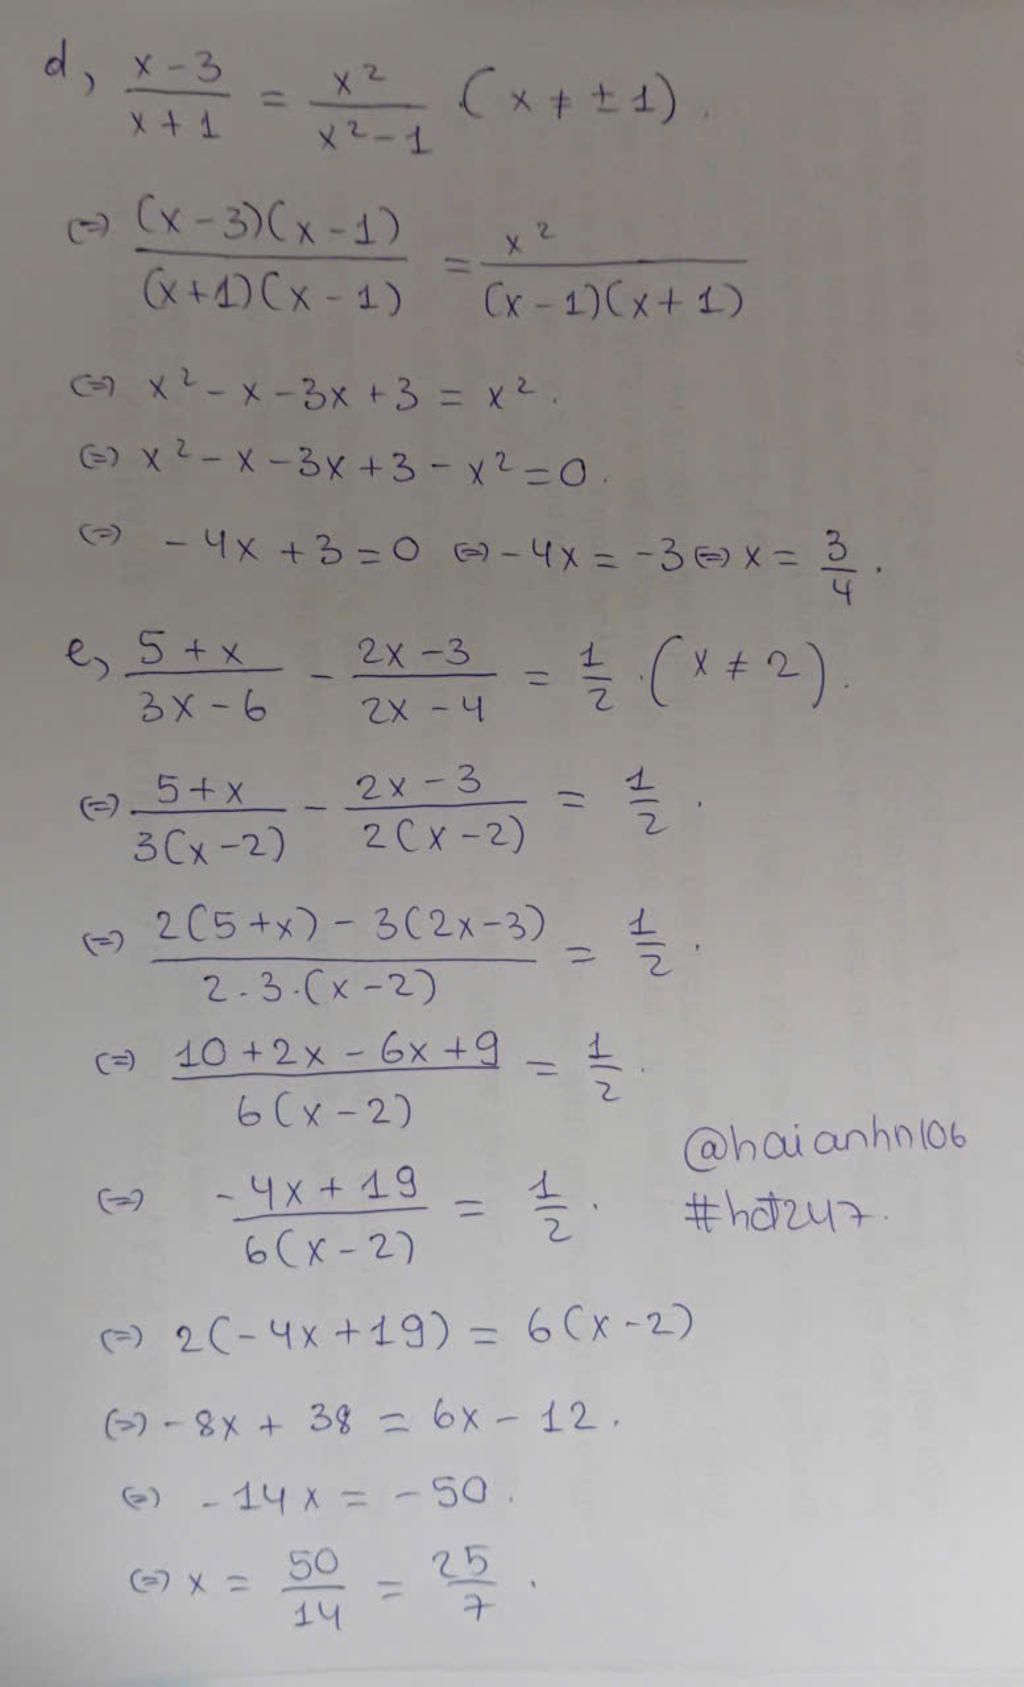 d, (x-3)/(x+1) = x²/(x²-1) (x ≠ ±1).
(=) ((x-3)(x-1))/((x+1)(x-1)) = x²/((x-1)(x+1))
(=) x² - x - 3x + 3 = x².
(=) x² - x - 3x + 3 - x² = 0.
(=) -4x + 3 = 0 (=) -4x = -3 (=) x = 3/4.
e, (5+x)/(3x-6) - (2x-3)/(2x-4) = 1/2. (x ≠ 2).
(=) (5+x)/(3(x-2)) - (2x-3)/(2(x-2)) = 1/2.
(=) (2(5+x) - 3(2x-3))/(2.3.(x-2)) = 1/2.
(=) (10+2x-6x+9)/(6(x-2)) = 1/2.
@haianhn106
(=) (-4x+19)/(6(x-2)) = 1/2.
#hdt247.
(=) 2(-4x+19) = 6(x-2)
(=) -8x + 38 = 6x - 12.
(=) -14x = -50.
(=) x = 50/14 = 25/7.